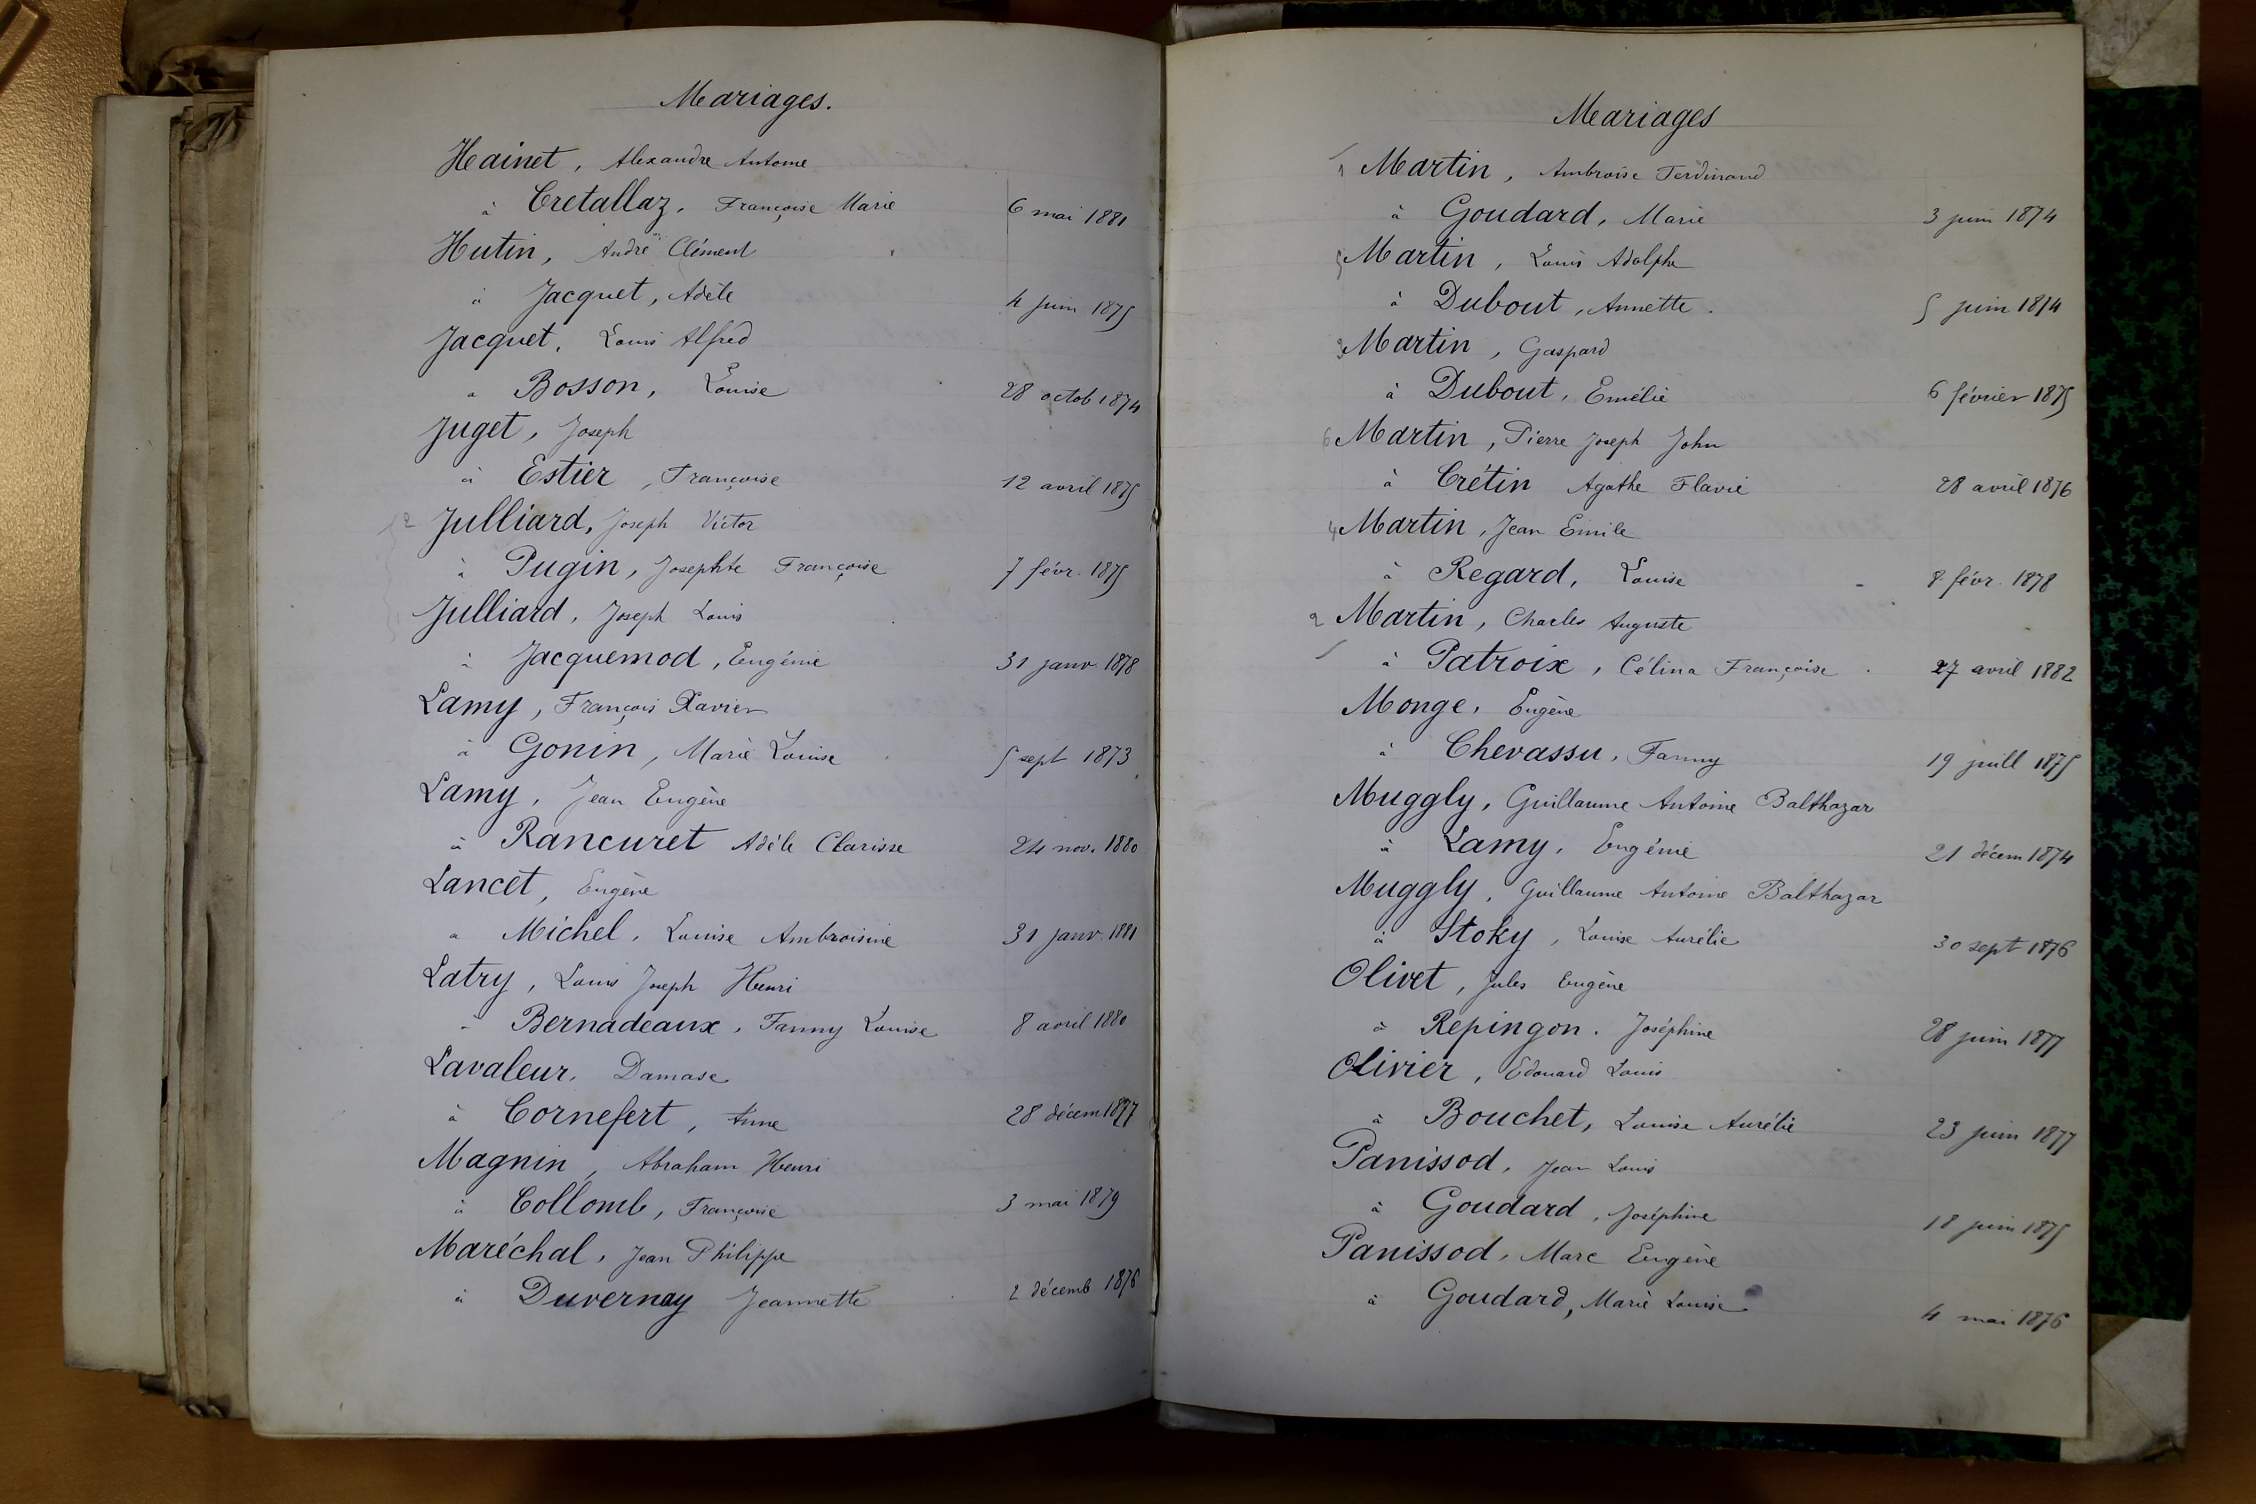 Mariages.
Hainet, Alexandre Antoine
à Cretallaz, Françoise Marie 6 mai 1881
Hutin, André Clément
à Jacquet, Adèle 4 juin 1875
Jacquet, Louis Alfred
à Bosson, Louise 28 octob 1874
Juget, Joseph
à Estier, Françoise 12 avril 1875
2 Julliard, Joseph Victor
à Pugin, Josephte Françoise 7 févr. 1875
Julliard, Joseph Louis
à Jacquemod, Eugénie 31 janv. 1878
Lamy, François Xavier
à Gonin, Marie Louise 5 sept 1873
Lamy, Jean Eugène
à Rancuret Adèle Clarisse 24 nov. 1880
Lancet, Eugène
a Michel, Louise Ambroisine 31 janv. 1881
Latry, Louis Joseph Henri
à Bernadeaux, Fanny Louise 8 avril 1880
Lavaleur, Damase
à Cornefert, Anne 28 décem 1877
Magnin, Abraham Henri
à Collomb, Françoise 3 mai 1879
Maréchal, Jean Philippe
à Duvernay Jeannette 2 décemb 1876
Mariages
1 Martin, Ambroise Ferdinand
à Goudard, Marie 3 juin 1874
5 Martin, Louis Adolphe
à Dubout, Annette. 5 juin 1874
3 Martin, Gaspard
à Dubout, Emélie 6 février 1875
6 Martin, Pierre Joseph John
à Crétin Agathe Flavie 28 avril 1876
4 Martin, Jean Emile
à Regard, Louise 8 févr. 1878
2 Martin, Charles Auguste
à Patroix, Célina Françoise 27 avril 1882
Monge, Eugène
à Chevassu, Fanny 19 juill 1875
Muggly, Guillaume Antoine Balthazar
à Lamy, Eugénie 21 décem 1874
Muggly, Guillaume Antoine Balthazar
à Stoky, Louise Aurélie 30 sept 1876
Olivet, Jules Eugène
à Repingon. Joséphine 28 juin 1877
Olivier, Edouard Louis
à Bouchet, Louise Aurélie 23 juin 1877
Panissod, Jean Louis
à Goudard, Joséphine 18 juin 1875
Panissod, Marc Eugène
à Goudard, Marie Louise 4 mai 1876